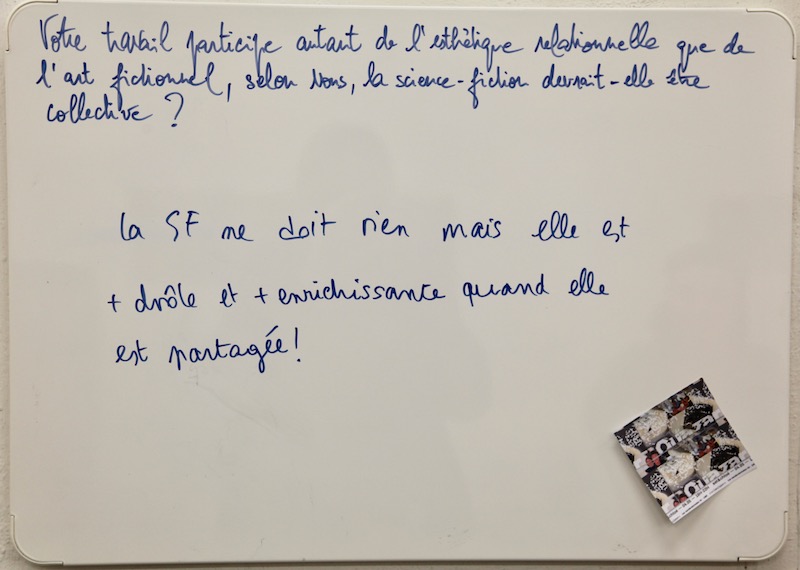 Votre travail participe autant de l'esthétique relationnelle que de
l'art fictionnel, selon vous, la science-fiction devrait-elle être
collective ?
la SF ne doit rien mais elle est
+ drôle et + enrichissante quand elle
est partagée !